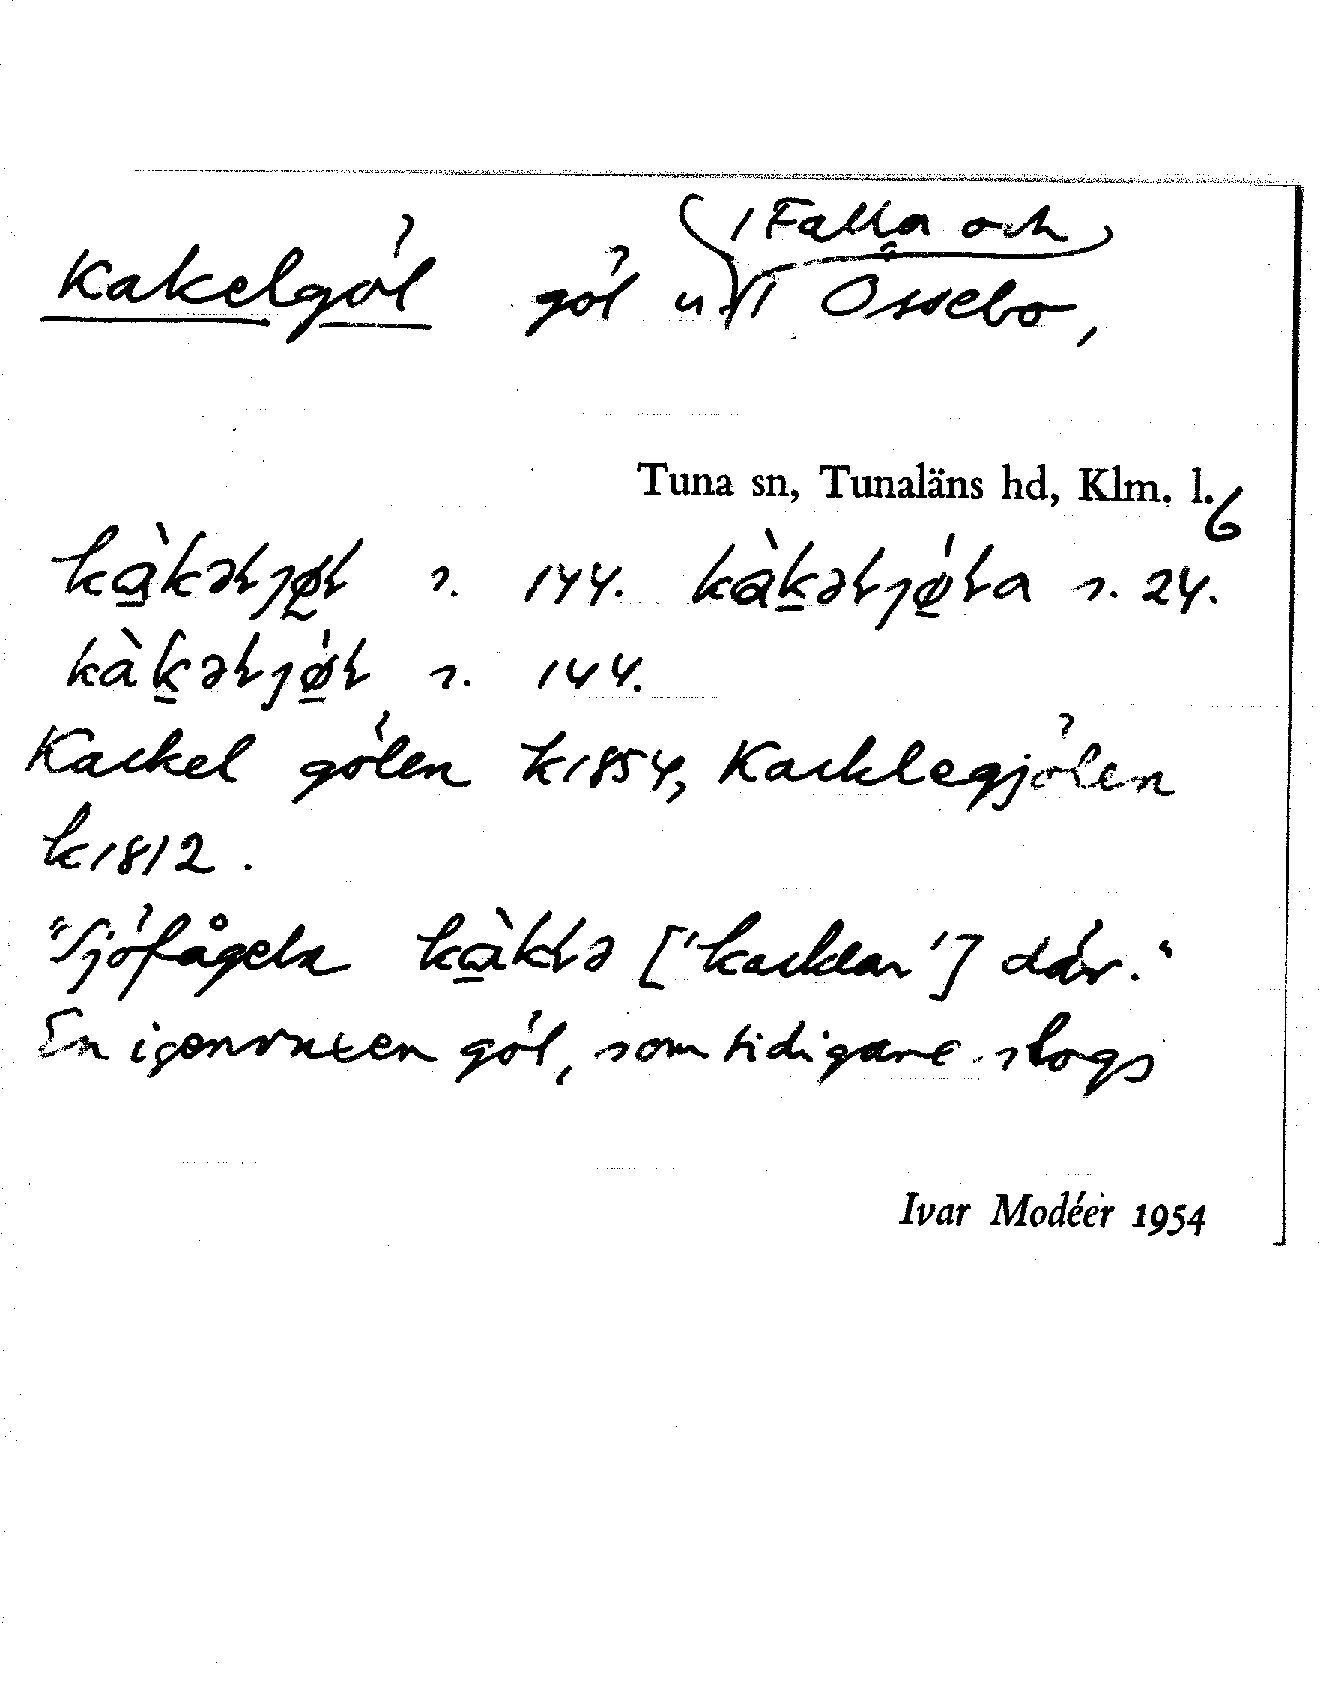 i Falla och
Kakelgöl göl u. Össebo,
Tuna sn, Tunaläns hd, Klm. l. 6
s. 144. s. 24.
s. 144.
Kackel gölen k1854, Kacklegjölen
k1812.
"Sjöfågeln ['kacklar'] där."
En igenvuxen göl, som tidigare slogs
Ivar Modéer 1954